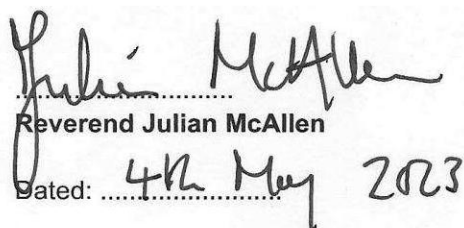 Julian McAllen
....................
Reverend Julian McAllen
Dated: 4th May 2023